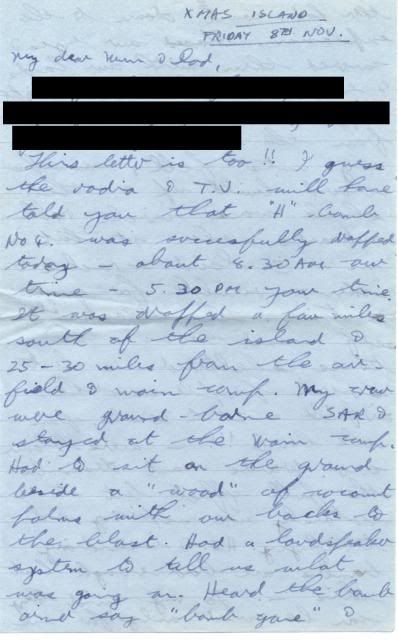 XMAS ISLAND
FRIDAY 8TH NOV.
My dear Mum & Dad,
This letter is too!! I guess
the radio & T.V. will have
told you that "H" bomb
No 6. was successfully dropped
today - about 8.30 AM our
time - 5.30 PM your time.
It was dropped a few miles
south of the island &
25-30 miles from the air-
field & main camp. My crew
were ground-borne SAR &
stayed at the main camp.
Had to sit on the ground
beside a "wood" of coconut
palms with our backs to
the blast. Had a loudspeaker
system to tell us what
was going on. Heard the bomb
aimer say "bomb gone" &